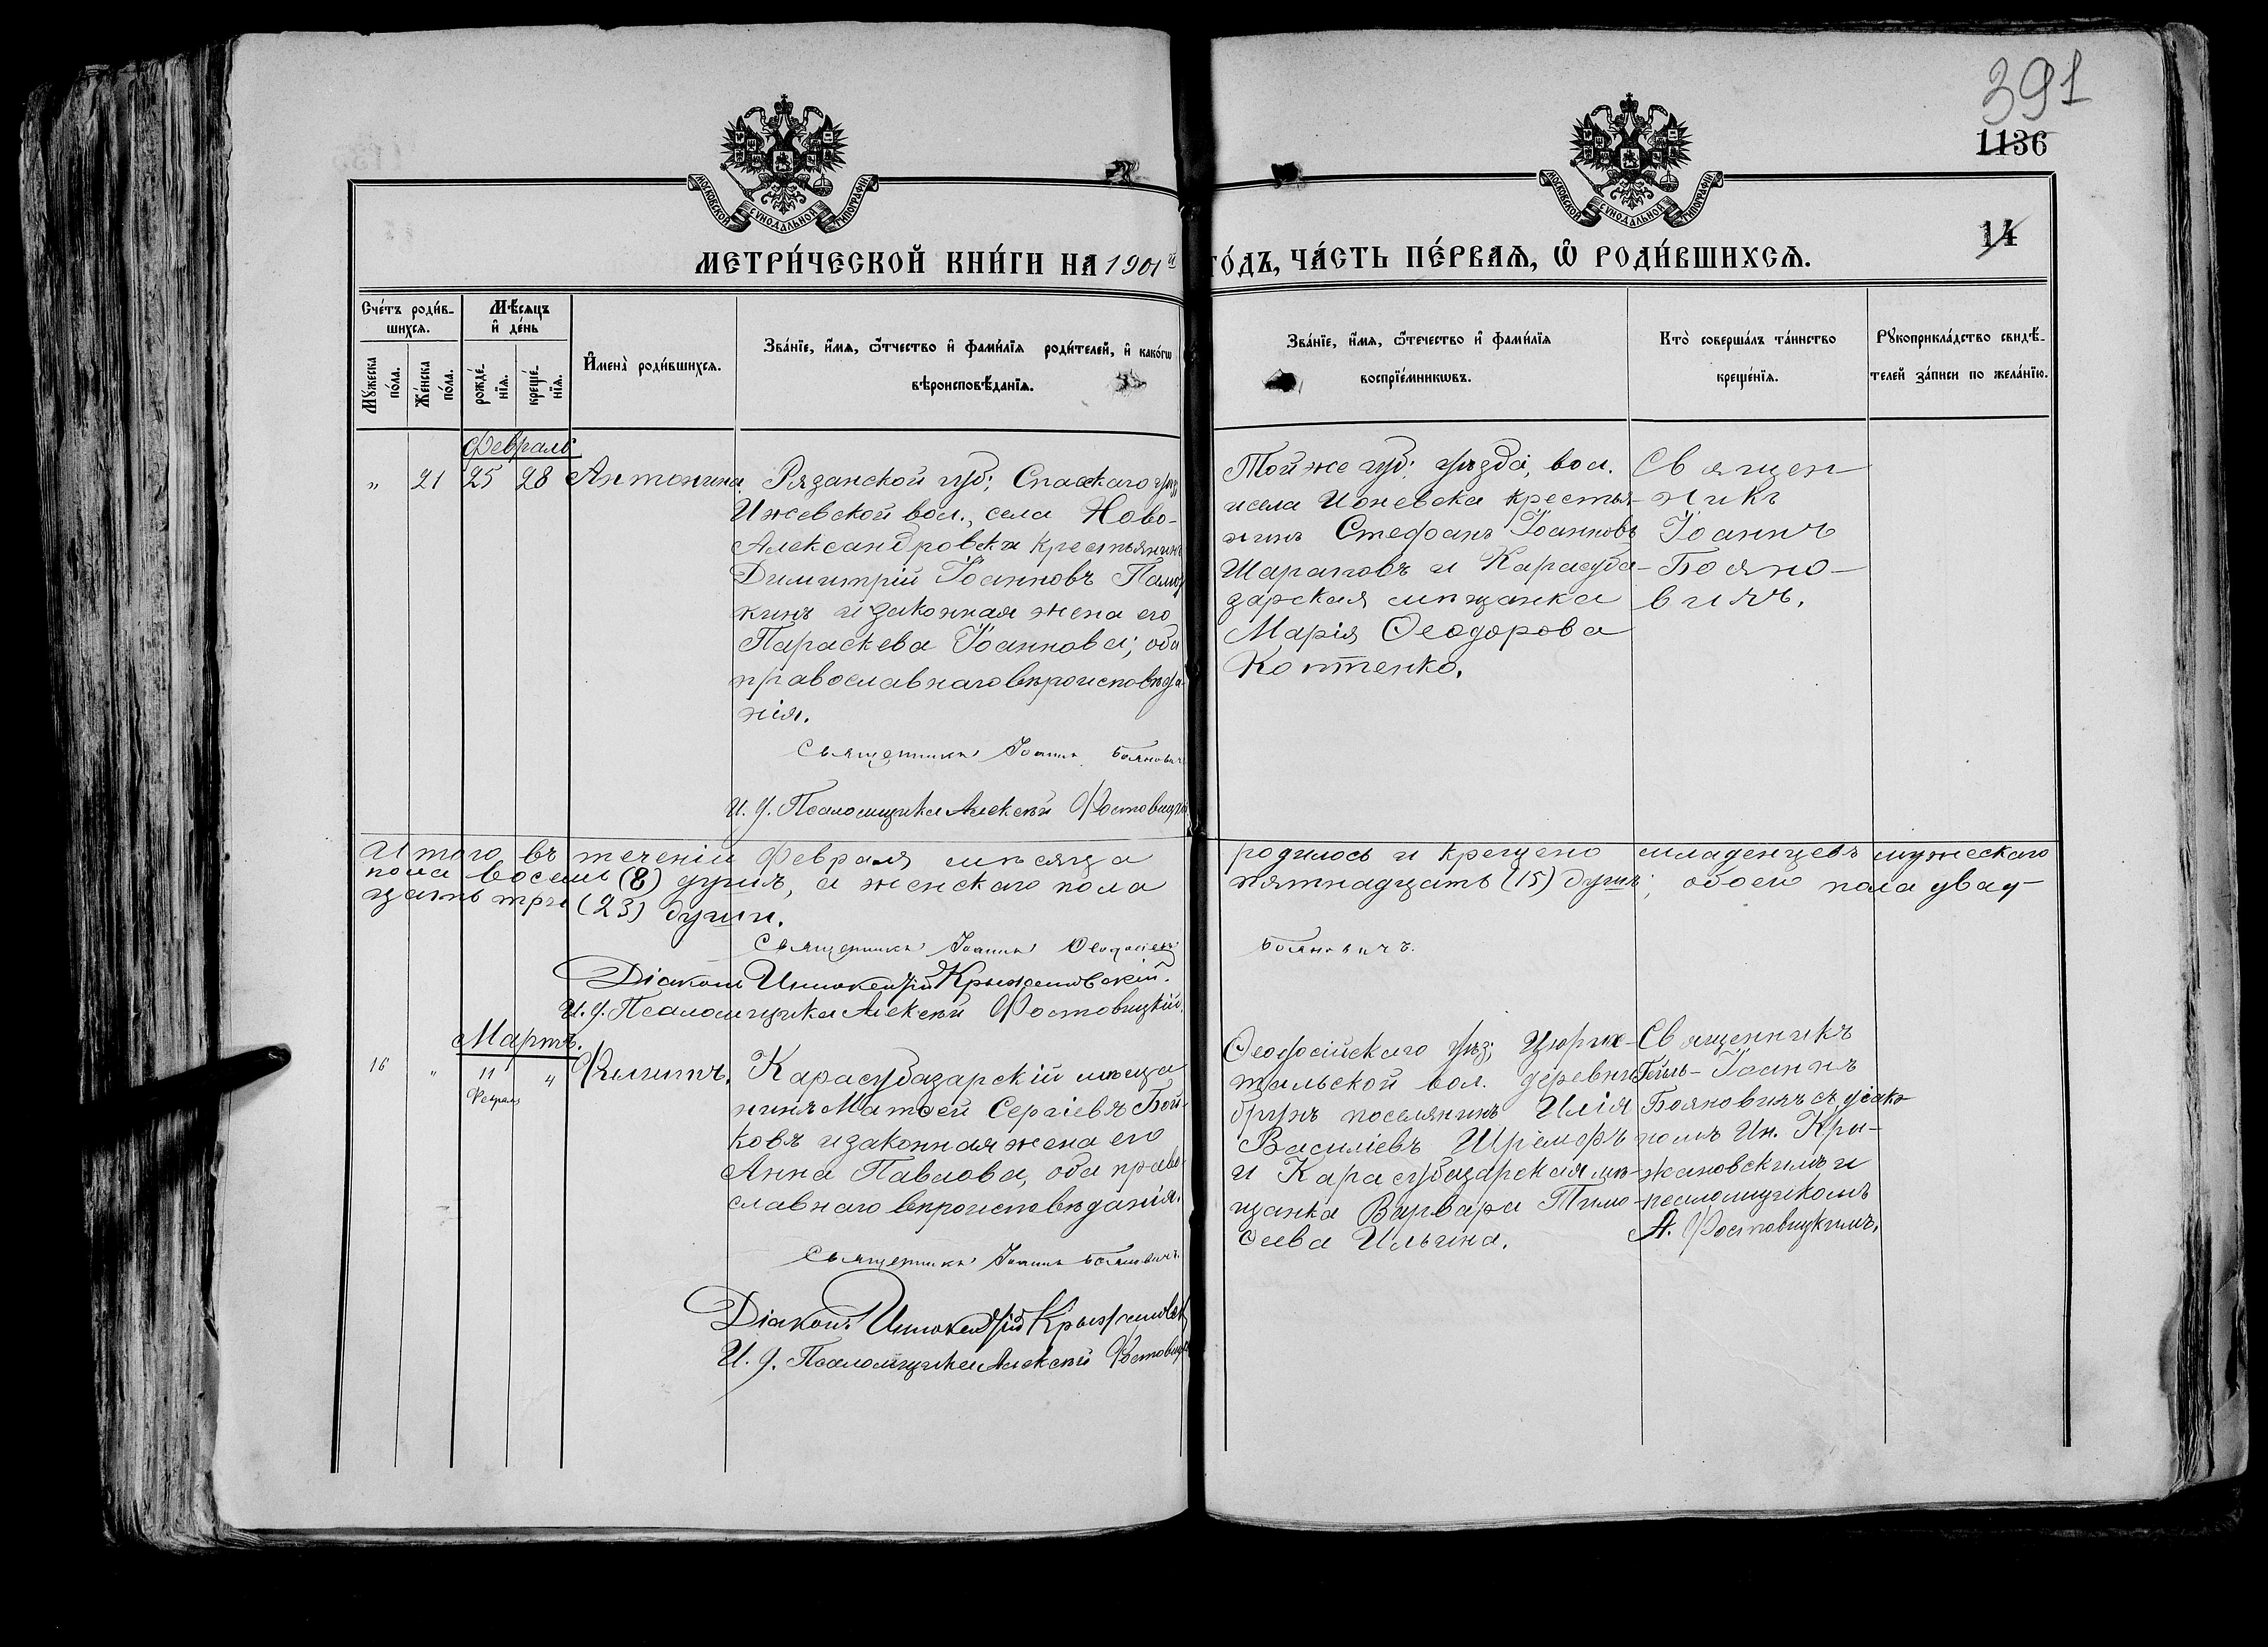 391
1136
14
МОСКОВСКОЙ СѴНОДАЛЬНОЙ ТИПОГРАФІИ
МОСКОВСКОЙ СѴНОДАЛЬНОЙ ТИПОГРАФІИ
МЕТРИ́ЧЕСКОЙ КНИ́ГИ НА 1901й ГО́ДЪ, ЧА́СТЬ ПЕ́РВАѦ, Ѡ РОДИ́ВШИХСѦ.
Сче́тъ роди́в-
шихсѧ.
Мꙋжеска по́ла.
Же́нска по́ла.
Мѣ́сѧцъ
и҆ де́нь
рожде́-
нїѧ.
креще́-
нїѧ.
И҆мена̀ роди́вшихсѧ.
Зва́нїе, и҆́мѧ, ѻ҆́тчество и҆ фами́лїѧ роди́телей, и҆ како́гѡ
вѣроисповѣ́данїѧ.
Зва́нїе, и҆́мѧ, ѻ҆́течество и҆ фами́лїѧ
воспрїе́мникѡвъ.
Кто̀ соверша́лъ та́инство
креще́нїѧ.
Рꙋкоприкла́дство свидѣ́-
телей за́писи по жела́нїю.
Февраль
" 21 25 28 Антонина.
Рязанской губ; Спасскаго уѣз
Ижевской вол., села Ново-
Александровска крестьянинъ
Димитрій Іоанновъ
кинъ и законная жена его
Параскева Іоаннова; оба
православнаго вѣроисповѣда-
нія.
Священникъ Іоаннъ Бояновичъ
И. д. Псаломщика Алексѣй Фостовицкій
Той же губ; уѣзда, вол.
и села Ижевска крестья-
нинъ Стефанъ Іоанновъ
Шараповъ и Карасуба-
зарская мѣщанка
Марія Ѳеодорова
Коптенко.
Священ-
никъ
Іоаннъ
Бояно-
вичъ.
Итого въ теченіи Февраля мѣсяца родилось и крещено младенцевъ мужескаго
пола восемь (8) душъ, а женскаго пола пятнадцать (15) душъ; обоего пола двад-
цать три (23) души.
Священникъ Іоаннъ Ѳеодосіевъ Бояновичъ.
Діаконъ Иннокентій Крыжановскій.
И. д. Псаломщика Алексѣй Фостовицкій.
Мартъ.
16 " 11 4 Филиппъ.
Февраля
Карасубазарскій мѣща
нинъ Матѳей Сергіевъ Бой-
ковъ и законная жена его
Анна Павлова, оба право-
славнаго вѣроисповѣданія.
Священникъ Іоаннъ Бояновичъ.
Діаконъ Иннокентій Крыжановск
И. д. Псаломщика Алексѣй Фостовицк
Ѳеодосійскаго уѣз; Цюрих-
тальской вол. деревни Гейль-
брунъ поселянинъ Илія
Василіевъ
и Карасубазарская мѣ-
щанка Варвара Тимо-
ѳеева Ильина.
Священникъ
Іоаннъ
Бояновичъ съ діако-
номъ Ин. Кры-
жановскимъ и
псаломщикомъ
А. Фостовицкимъ.